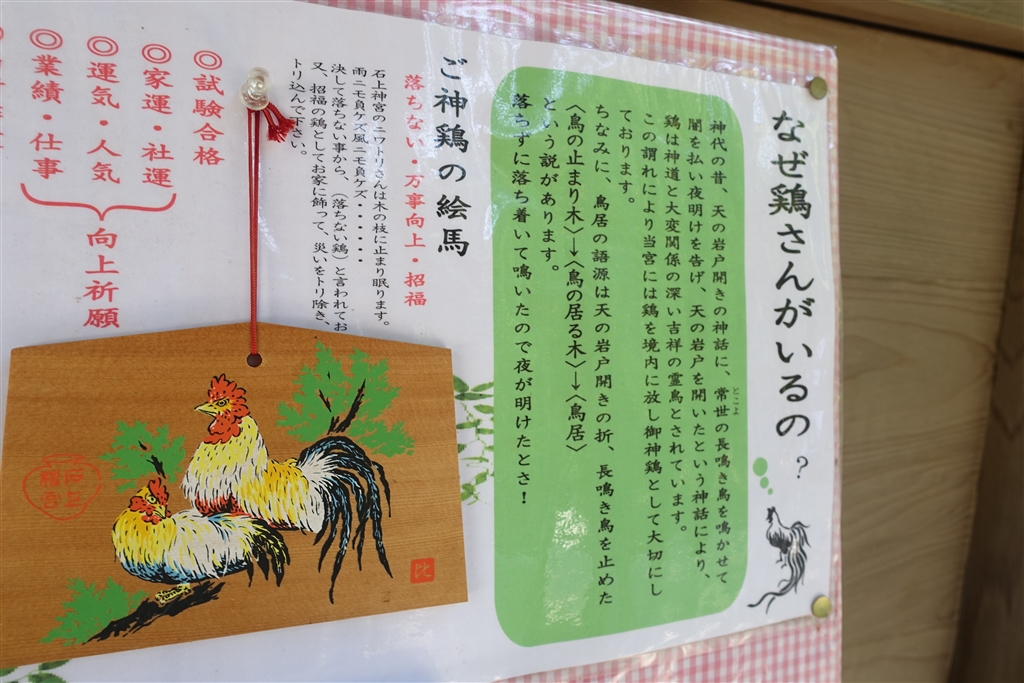 なぜ鶏さんがいるの？
神代の昔、天の岩戸開きの神話に、常世の長鳴き鳥を鳴かせて
とこよ
闇を払い夜明けを告げ、天の岩戸を開いたという神話により、
鶏は神道と大変関係の深い吉祥の霊鳥とされています。
この謂れにより当宮には鶏を境内に放し御神鶏として大切にし
ております。
ちなみに、鳥居の語源は天の岩戸開きの折、長鳴き鳥を止めた
〈鳥の止まり木〉→〈鳥の居る木〉→〈鳥居〉
という説があります。
落ちずに落ち着いて鳴いたので夜が明けたとさ！
ご神鶏の絵馬
落ちない・万事向上・招福
石上神宮のニワトリさんは木の枝に止まり眠ります。
雨ニモ負ケズ風ニモ負ケズ・・・・・
決して落ちない事から、（落ちない鶏）と言われてお
又、招福の鶏としてお家に飾って、災いをトリ除き、
トリ込んで下さい。
◎試験合格
◎家運・社運
◎運気・人気
◎業績・仕事
向上祈願